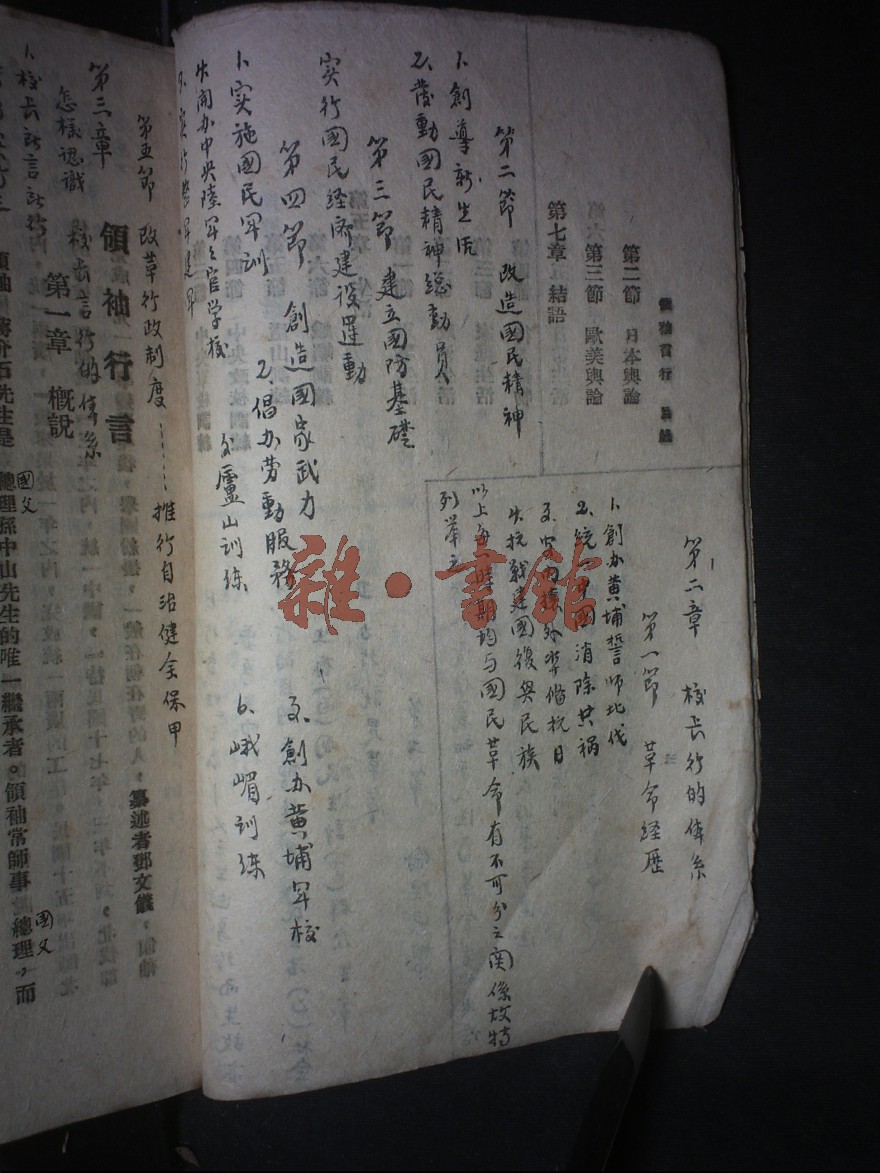 領袖言行 目錄
第二節 日本輿論
第三節 歐美輿論
第七章 結語
第二章 校长行的体系
第一节 革命经歴
1、創办黄埔誓师北伐
2、统一中國消除共祸
3、安内攘外準俻抗日
4、抗戰建國復兴民族
以上每一時期均与國民革命有不可分之関係故特
列举之
第二節 改造國民精神
1、創導新生活
2、發動國民精神總動員
第三節 建立國防基礎
实行國民经济建设運動
第四節 創造國家武力
1、实施國民军训
2、倡办劳動服務
3、創办黄埔军校
4、開办中央陸軍軍官学校
5、廬山訓练
6、峨嵋訓练
第五節 改革行政制度……推行自治健全保甲
第三章
怎樣认識 校长言行的体系
領袖言行
纂述者鄧文儀
第一章 概說
1、校长
國父
總理孫中山先生的唯一繼承者。領袖常師事
國父
總理，而
雜·書館